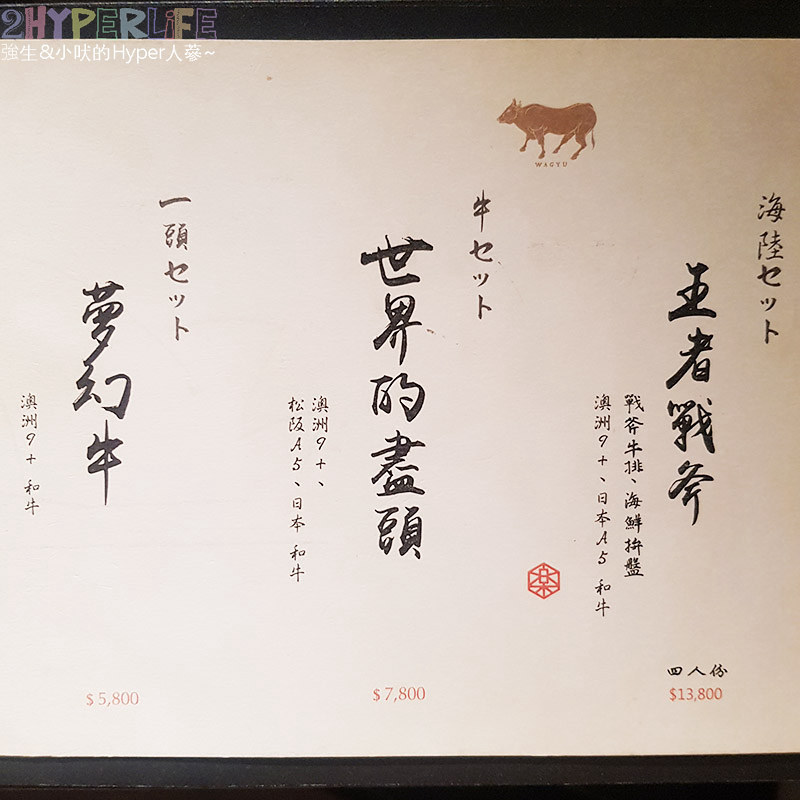 2HYPERLiFE
強生&小吠的Hyper人蔘~
WAGYU
海陸セット
王者戰斧
戰斧牛排、海鮮拚盤
澳洲9+、日本A5 和牛
四人份
$13,800
牛セット
世界的盡頭
澳洲9+、
松阪A5、日本 和牛
$7,800
一頭セット
夢幻牛
澳洲9+ 和牛
$5,800